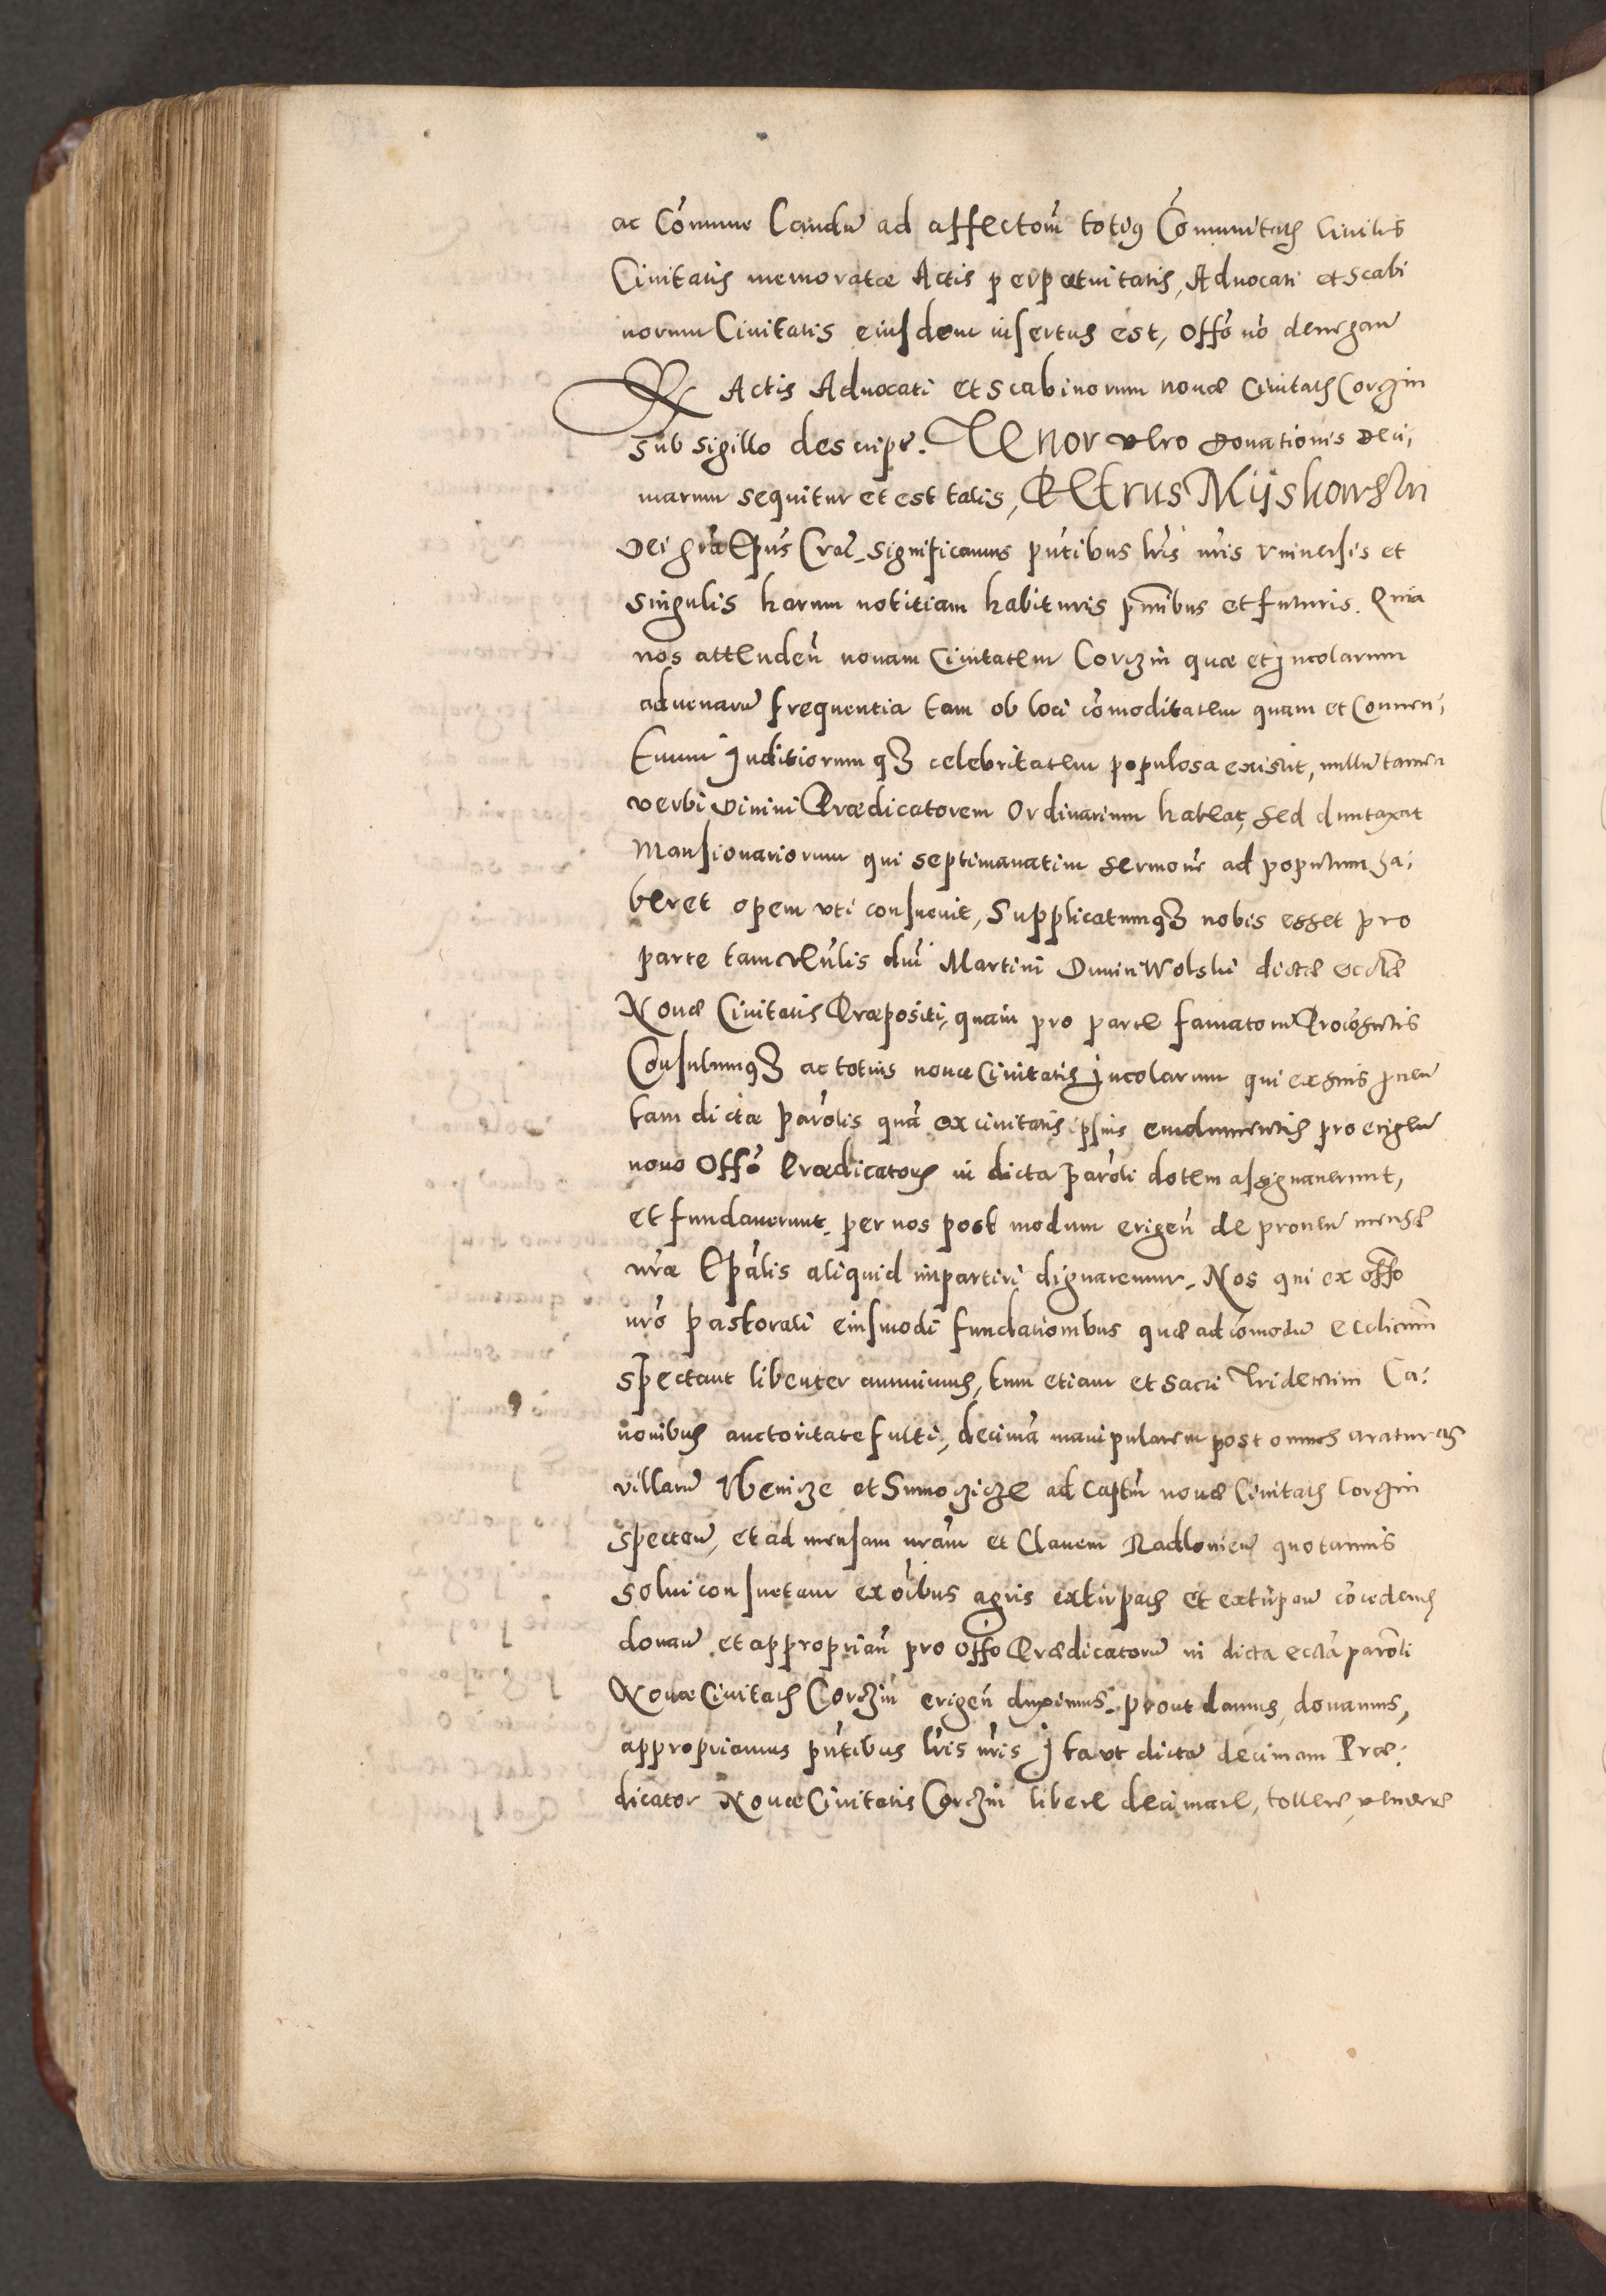 ac Cõmune Laudũ ad affectoũ totiꝰ Cõmunitatis Civiles
Civitatis memoratæ Actis perpetuitatis, Advocati et Scabi
norum Civitatis eiusdem insertus est, offõ nõ denegaũ
Ex Actis Advocati et Scabinorum novæ Civitatis Corczin
sub sigillo descript. Tenor vero Donationis Deci,
marum sequitur et est talis, Petrus Myskowski
Dei grã Epũs Crac. significamus pñtibus lrĩs nrĩs vniversis et
singulis harum notitiam habituris pñtibus et futuris. Quia
nos attendeñ novam Civitatem Corczin quæ et Incolarum
advenarũ frequentia tam ob loci cõmoditatem quam et Conven,
tuum Juditiorumqȝ celebritatem populosa existit, nullũ tamen
verbi Divini Prædicatorem Ordinarium habeat, sed duntaxat
Mansionariorum qui septimanatim sermonẽ ad populum ha,
beret opem vti consuevit, Supplicatumqȝ nobis esset pro
parte tam Veñlis dñi Martini Dunin Wolski dictæ ecclæ
Novæ Civitatis Præpositi, quam pro parte famatorũ Procõsulis
Consulumqȝ ac totius novæ Civitatis Incolarum qui ex suis
tam dictæ parõlis quã ex civitatis ipsius emolumentis pro erigeñ
novo Offõ Prædicatoris in dicta parõli dotem assignaverunt,
et fundaverunt. per nos post modum erigeñ de proveñ mensæ
nræ Epãlis aliquid impartiri dignaremur. Nos qui ex offo
nrõ pastorali eiusmodi fundationibus quæ ad cõmodũ
spectant libenter annuimus, tum etiam et sacri Tridentini Ca,
nonibus auctoritate fulti, decimã manipularem post omnes araturas
villarũ Vbenicze et Smoczicze ad captũ novæ Civitatis Corczin
specteñ, et ad mensam nrãm et Clavem Radlovieñ quotannis
solvi consuetam ex oĩbus agris extirpatis et extirpañ cõcedendũ
donañ et appropriañ pro Offo Prædicatorũ in dicta eccla parõli
Novæ Civitatis Corczin erigeñ duximus. prout damus, donamus,
appropriamus pñtibus lrĩs nrĩs Ita vt dictã decimam Præ,
dicator Novæ Civitatis Corczin libere decimare, tollere, vendere